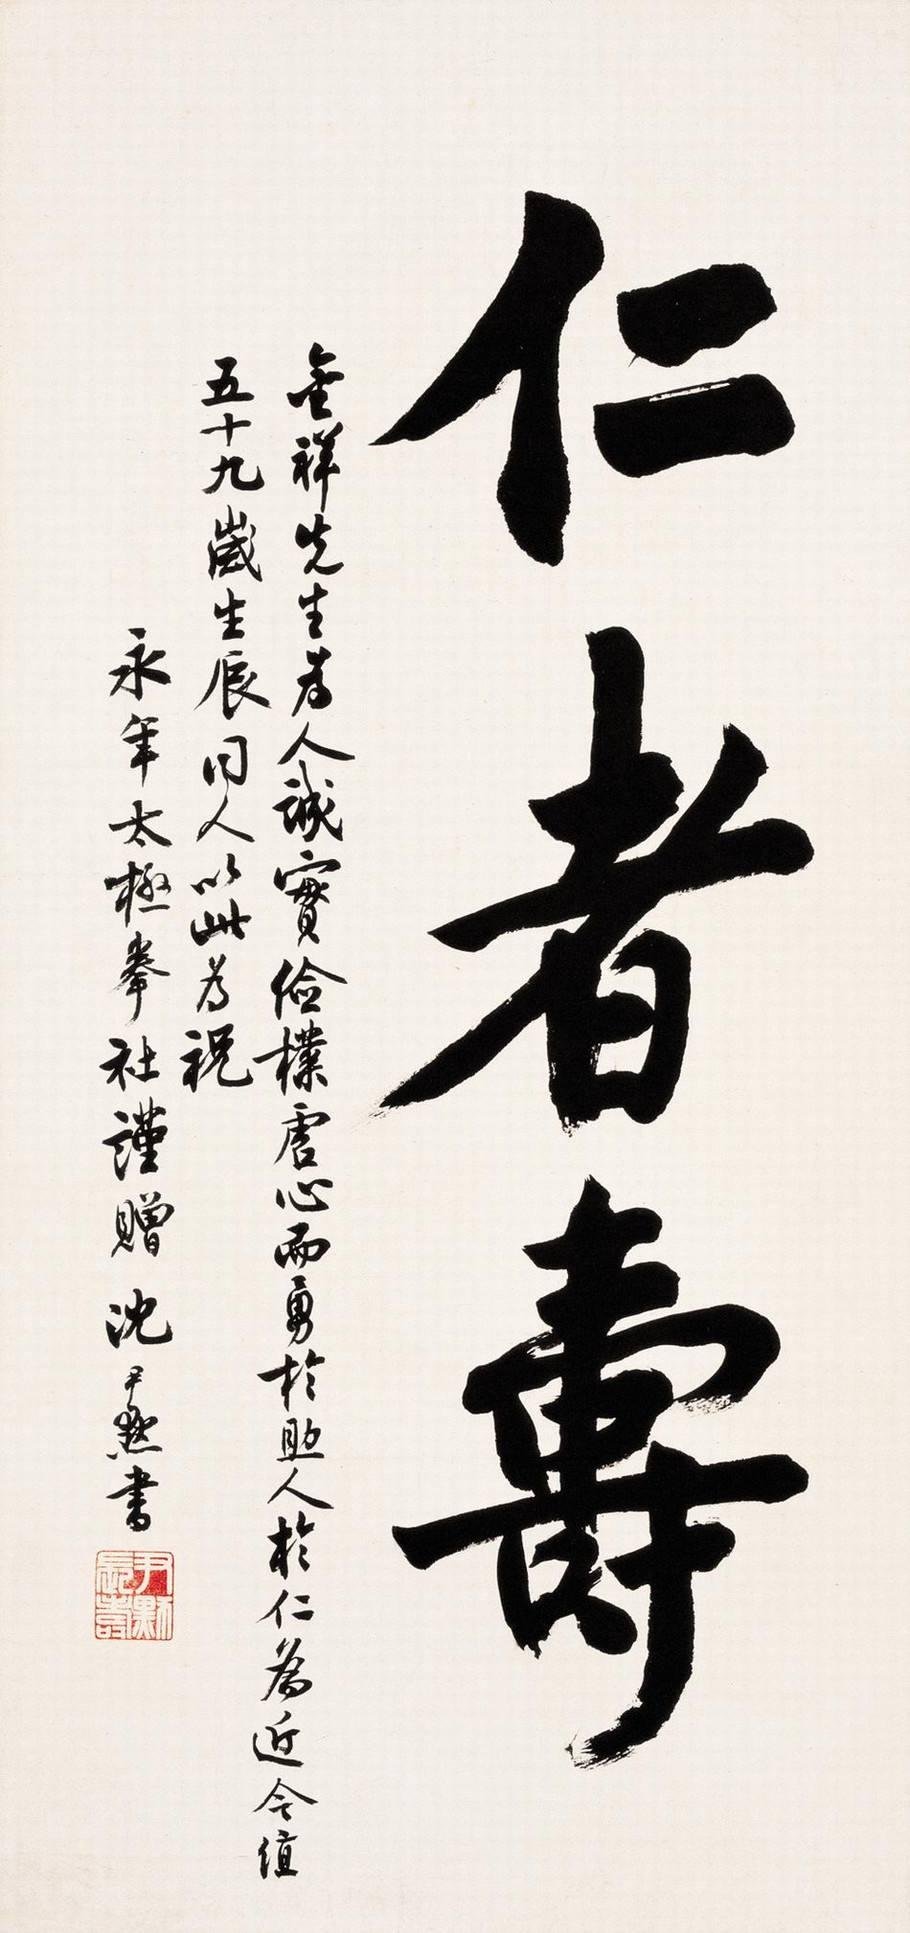 仁者壽
金祥先生為人誠實儉樸虛心而勇於助人於仁為近今值
五十九歲生辰同人以此為祝
永年太極拳社謹贈 沈尹默書
尹默